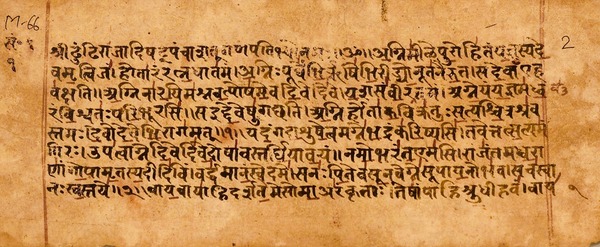 M-66
2
१
श्री ढुंढिराजादिषट्पंचाशत्गणपतिभ्यो ॥ॐ॥ अग्निमीळेपुरोहितंयज्ञस्यदे
वमृत्विजं। होतारंरत्नधातमं॥ अग्निःपूर्वेभिर्ऋषिभिरीड्योनूतनैरुत। सदेवाँएह
वक्षति॥ अग्निनारयिमश्नवत्पोषमेवदिवेदिवे। अग्नेयंयज्ञमध्व
रंविश्वतःपरिभूरसि॥ सइद्देवेषुगछति॥ अग्निर्होताकविक्रतुःसत्यश्चित्रश्रव
स्तमः। देवोदेवेभिरागमत्॥१॥ यदंगदाशुषेत्वमग्नेभद्रंकरिष्यसि॥ तवेत्तत्सत्यमं
गिरः॥ उपत्वाग्नेदिवेदिवेदोषावस्तर्धियावयं॥ नमोभरंतएमसि॥ राजंतमध्वरा
णांगोपामृतस्यदीदिविं। वर्द्धमानंस्वेदमे॥ सनःपितेवसूनवेग्नेसूपायनोभव। सचस्वा
नःस्वस्तये॥२॥ वायवायाहिदर्शतेमेसोमाअरंकृताः। तेषांपाहिश्रुधीहवं। वाय